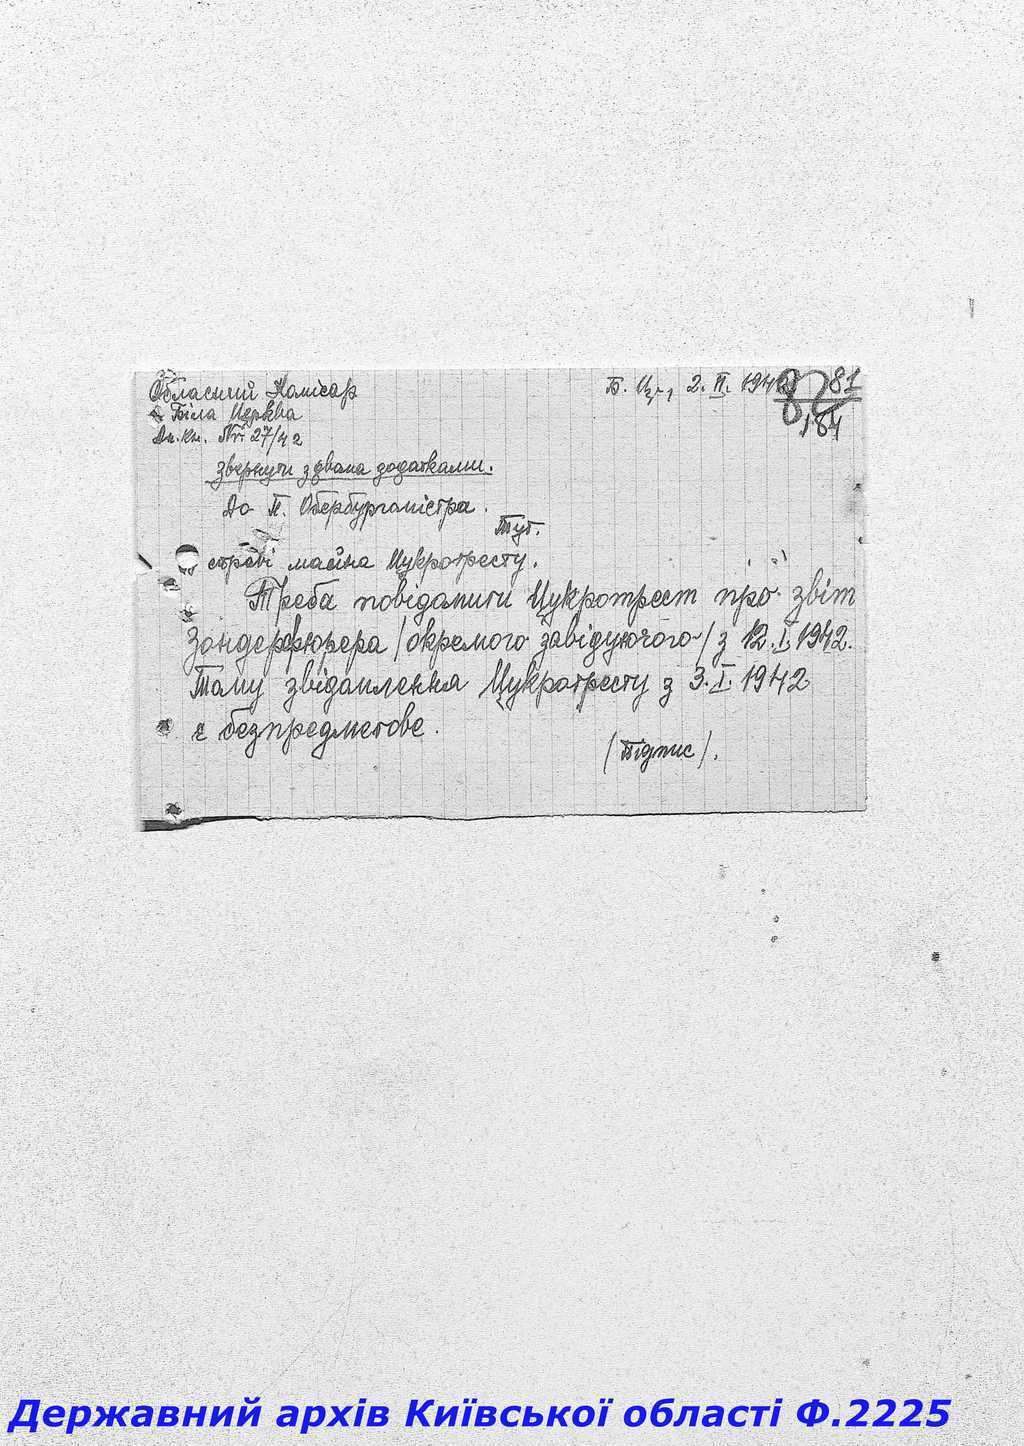 Обласний Комісар
Біла Церква
Дн. кн. Nr. 27/42
Б. Ц., 2. II. 1942
81
184
Звернути з двома додатками.
До П. Обербургомістра.
Тут.
справі майна Цукротресту.
Треба повідомити Цукротрест про звіт
Зондерфюрера /окремого завідуючого/ з 12. I. 1942.
Тому звідомлення Цукротресту з 3. I. 1942
є безпредметове.
/Підпис/.
Державний архів Київської області Ф.2225